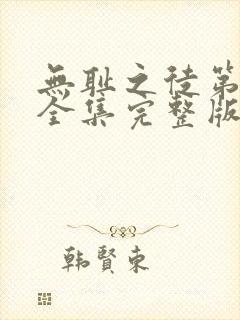 無耻之徒第
全集完整版
韩賢東